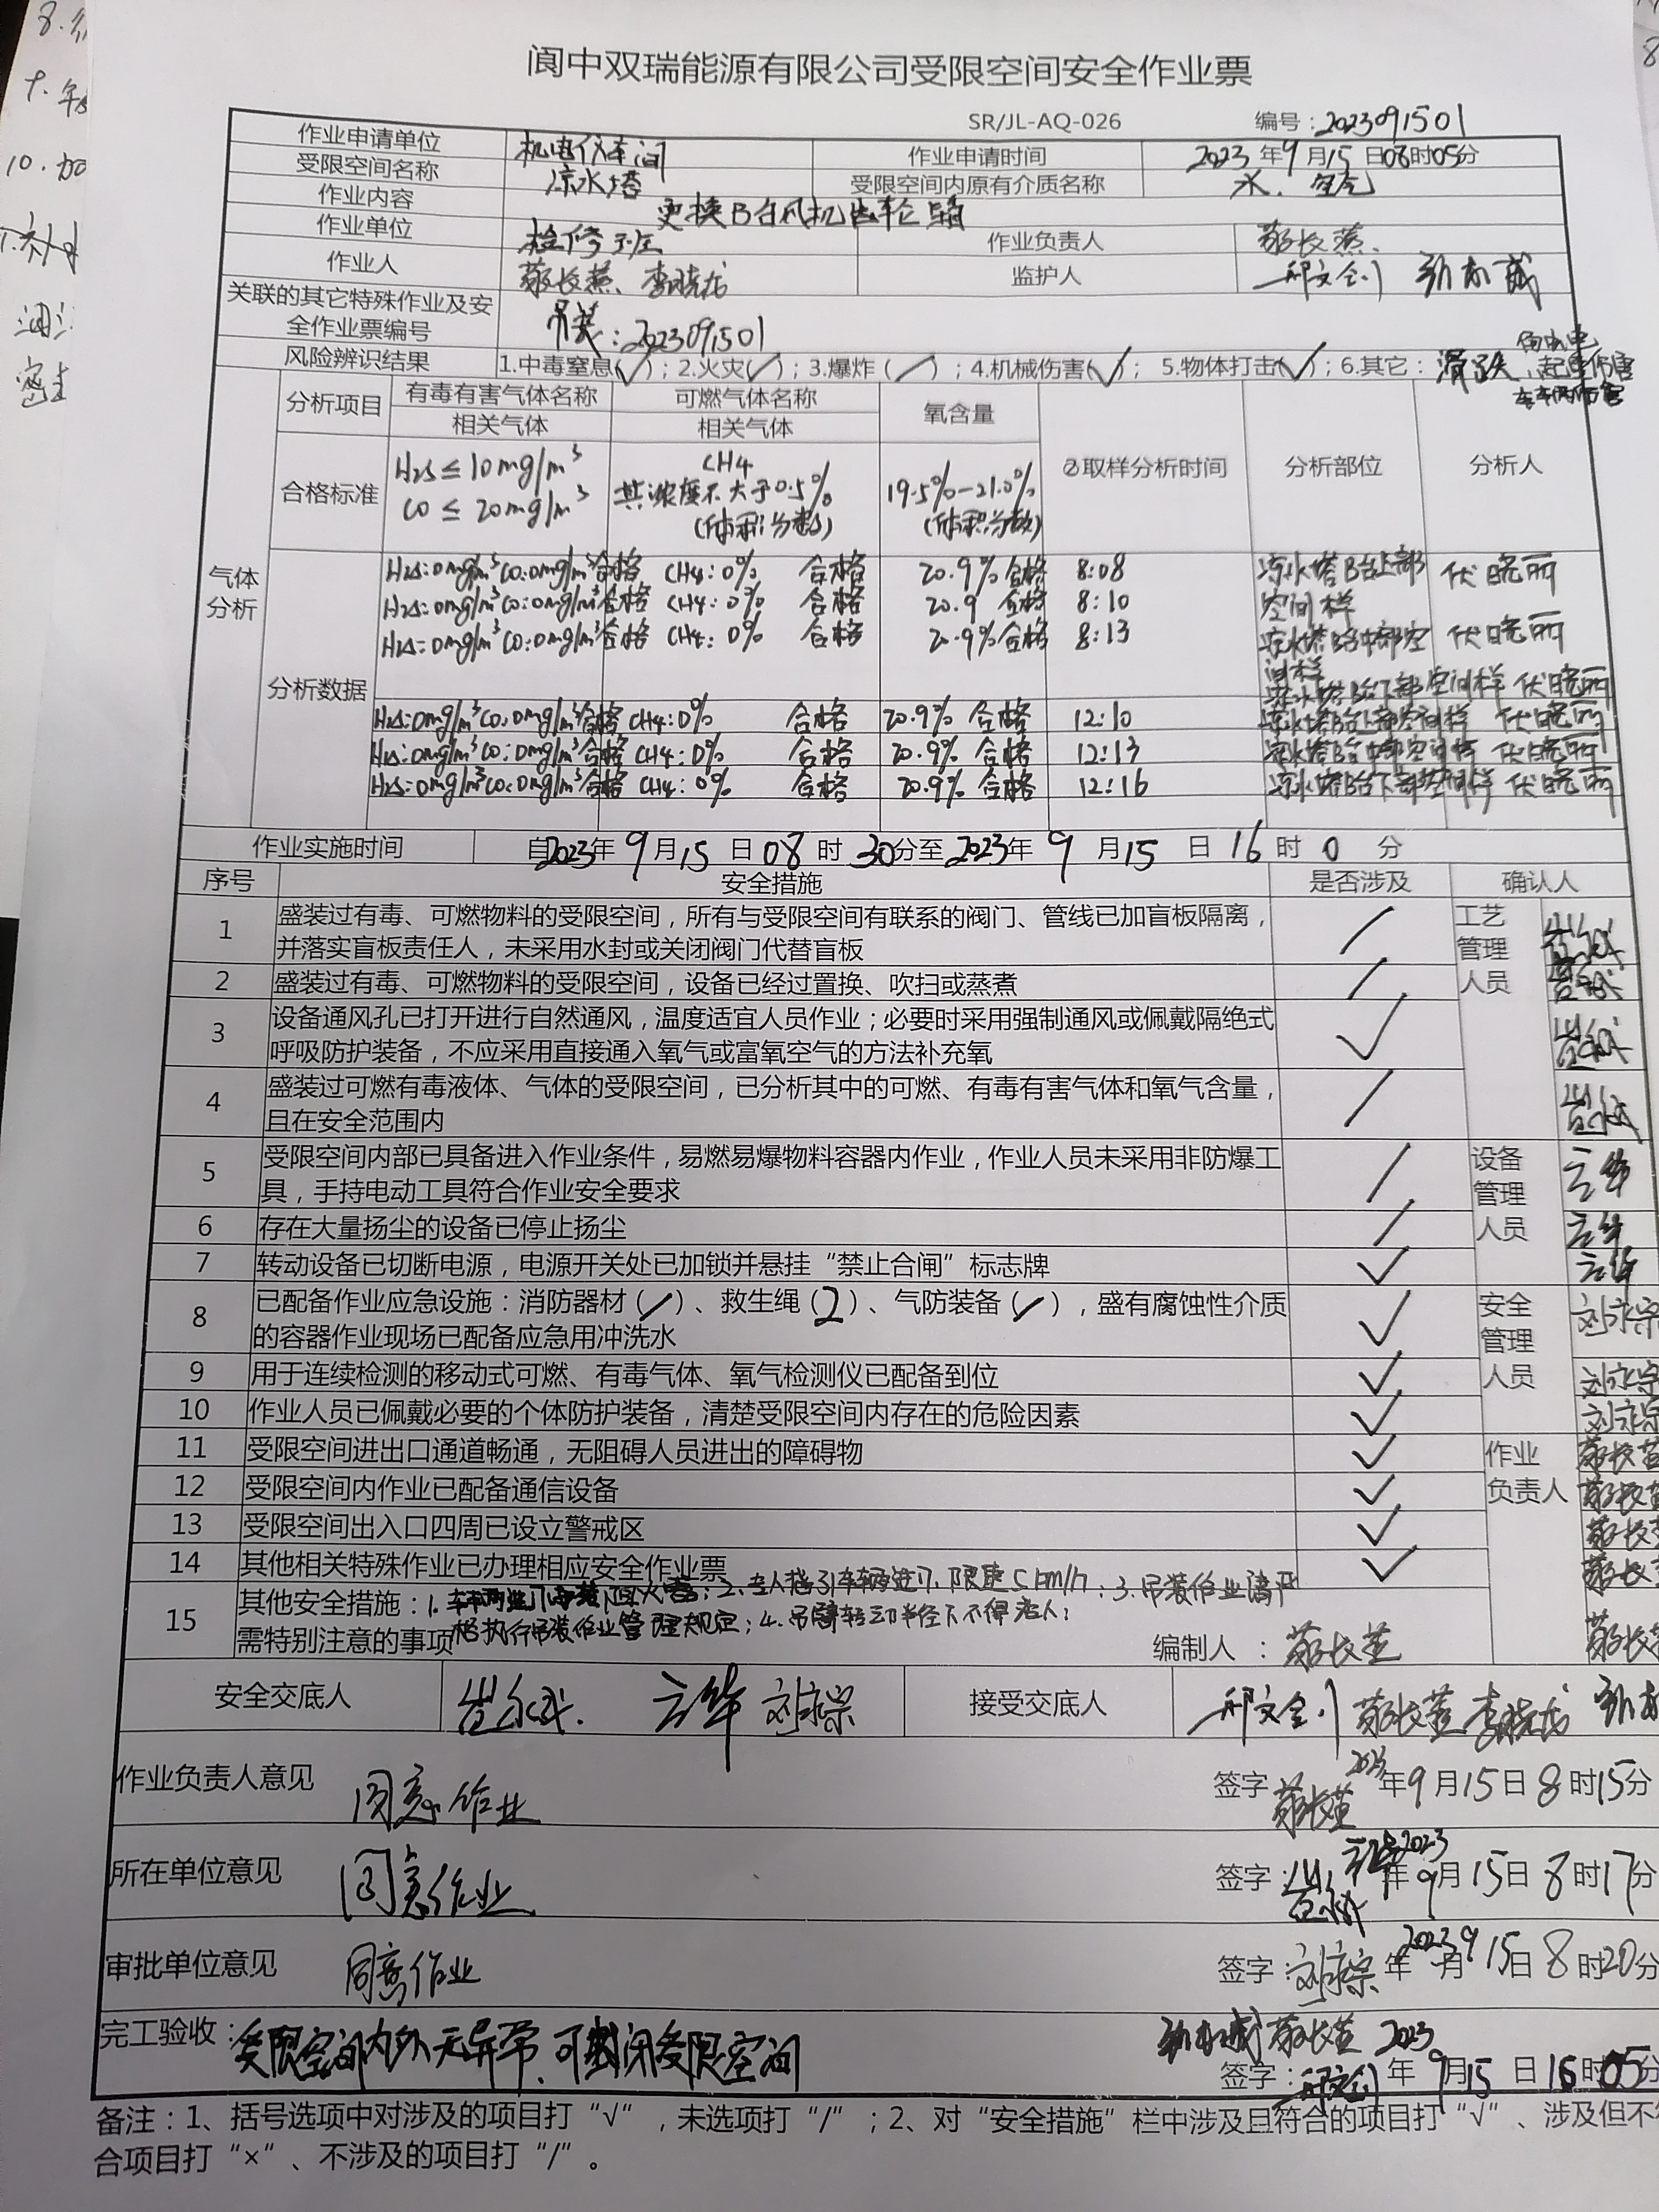 阆中双瑞能源有限公司受限空间安全作业票
SR/JL-AQ-026 编号:2023091501
作业申请单位 机电仪车间 作业申请时间 2023年9月15日08时05分
受限空间名称 凉水塔 受限空间内原有介质名称 水、空气
作业内容 更换B台风机齿轮箱
作业单位 检修班 作业负责人
作业人 监护人
关联的其它特殊作业及安
全作业票编号 吊装:2023091501
风险辨识结果 1.中毒窒息(✓);2.火灾(✓);3.爆炸(/);4.机械伤害(✓);5.物体打击(✓);6.其它:滑跌、触电、起重伤害
车辆伤害
气体分析
分析项目 有毒有害气体名称 可燃气体名称 氧含量 ②取样分析时间 分析部位 分析人
相关气体 相关气体
合格标准 H₂S≤10mg/m³ CO≤20mg/m³ CH4 其浓度不大于0.5%(体积分数) 19.5%-21.0%(体积分数)
分析数据
H₂S:0mg/m³ CO:0mg/m³合格 CH4:0% 合格 20.9% 合格 8:08 凉水塔B台上部空间样 伏晓丽
H₂S:0mg/m³ CO:0mg/m³合格 CH4:0% 合格 20.9 合格 8:10 凉水塔B台中部空间样 伏晓丽
H₂S:0mg/m³ CO:0mg/m³合格 CH4:0% 合格 20.9%合格 8:13 凉水塔B台下部空间样 伏晓丽
H₂S:0mg/m³ CO:0mg/m³合格 CH4:0% 合格 20.9% 合格 12:10 凉水塔B台上部空间样 伏晓丽
H₂S:0mg/m³ CO:0mg/m³合格 CH4:0% 合格 20.9% 合格 12:13 凉水塔B台中部空间样 伏晓丽
H₂S:0mg/m³ CO:0mg/m³合格 CH4:0% 合格 20.9% 合格 12:16 凉水塔B台下部空间样 伏晓丽
作业实施时间 自2023年9月15日08时30分至2023年9月15日16时0分
序号 安全措施 是否涉及 确认人
1 盛装过有毒、可燃物料的受限空间，所有与受限空间有联系的阀门、管线已加盲板隔离， / 工艺
并落实盲板责任人，未采用水封或关闭阀门代替盲板 管理
2 盛装过有毒、可燃物料的受限空间，设备已经过置换、吹扫或蒸煮 / 人员
3 设备通风孔已打开进行自然通风，温度适宜人员作业；必要时采用强制通风或佩戴隔绝式 ✓
呼吸防护装备，不应采用直接通入氧气或富氧空气的方法补充氧
4 盛装过可燃有毒液体、气体的受限空间，已分析其中的可燃、有毒有害气体和氧气含量， /
且在安全范围内
5 受限空间内部已具备进入作业条件，易燃易爆物料容器内作业，作业人员未采用非防爆工 / 设备
具，手持电动工具符合作业安全要求 管理
6 存在大量扬尘的设备已停止扬尘 / 人员
7 转动设备已切断电源，电源开关处已加锁并悬挂“禁止合闸”标志牌 ✓
8 已配备作业应急设施：消防器材(/)、救生绳(2)、气防装备(✓)，盛有腐蚀性介质 ✓ 安全
的容器作业现场已配备应急用冲洗水 管理
9 用于连续检测的移动式可燃、有毒气体、氧气检测仪已配备到位 ✓ 人员
10 作业人员已佩戴必要的个体防护装备，清楚受限空间内存在的危险因素 ✓
11 受限空间进出口通道畅通，无阻碍人员进出的障碍物 ✓ 作业
12 受限空间内作业已配备通信设备 ✓ 负责人
13 受限空间出入口四周已设立警戒区 ✓
14 其他相关特殊作业已办理相应安全作业票 ✓
15 其他安全措施：1.车辆进厂 阻火器；2.专人指引车辆进厂,限速5km/h；3.吊装作业请严
需特别注意的事项 格执行吊装作业管理规定；4.吊臂转动半径下不得占人； 编制人：
安全交底人 云华 接受交底人
作业负责人意见 同意作业 签字 2023年9月15日8时15分
所在单位意见 同意作业 签字：云华 2023年9月15日8时17分
审批单位意见 同意作业 签字： 2023年9月15日8时20分
完工验收：受限空间内外无异常,可封闭受限空间 签字： 2023年9月15日16时05分
备注：1、括号选项中对涉及的项目打“√”，未选项打“/”；2、对“安全措施”栏中涉及且符合的项目打“√”、涉及但不符
合项目打“×”、不涉及的项目打“/”。